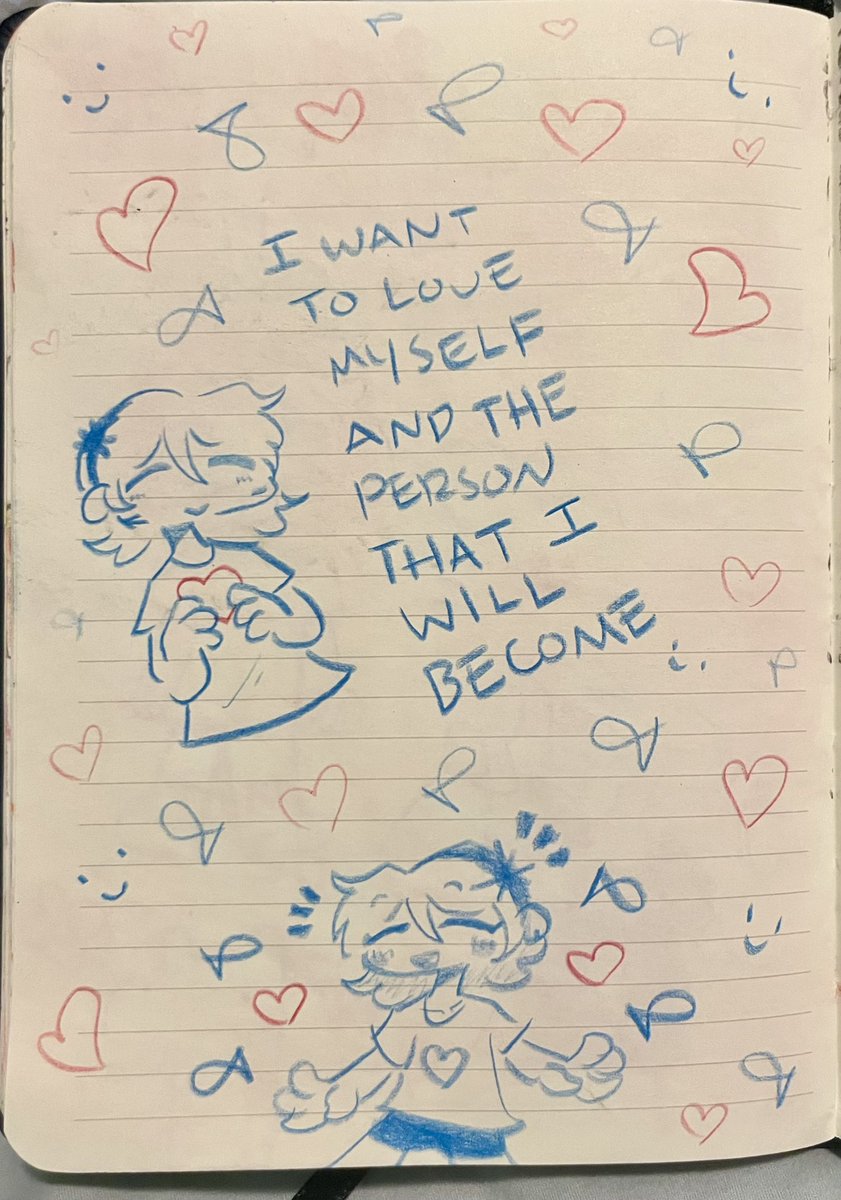 I WANT
TO LOVE
MYSELF
AND THE
PERSON
THAT I
WILL
BECOME